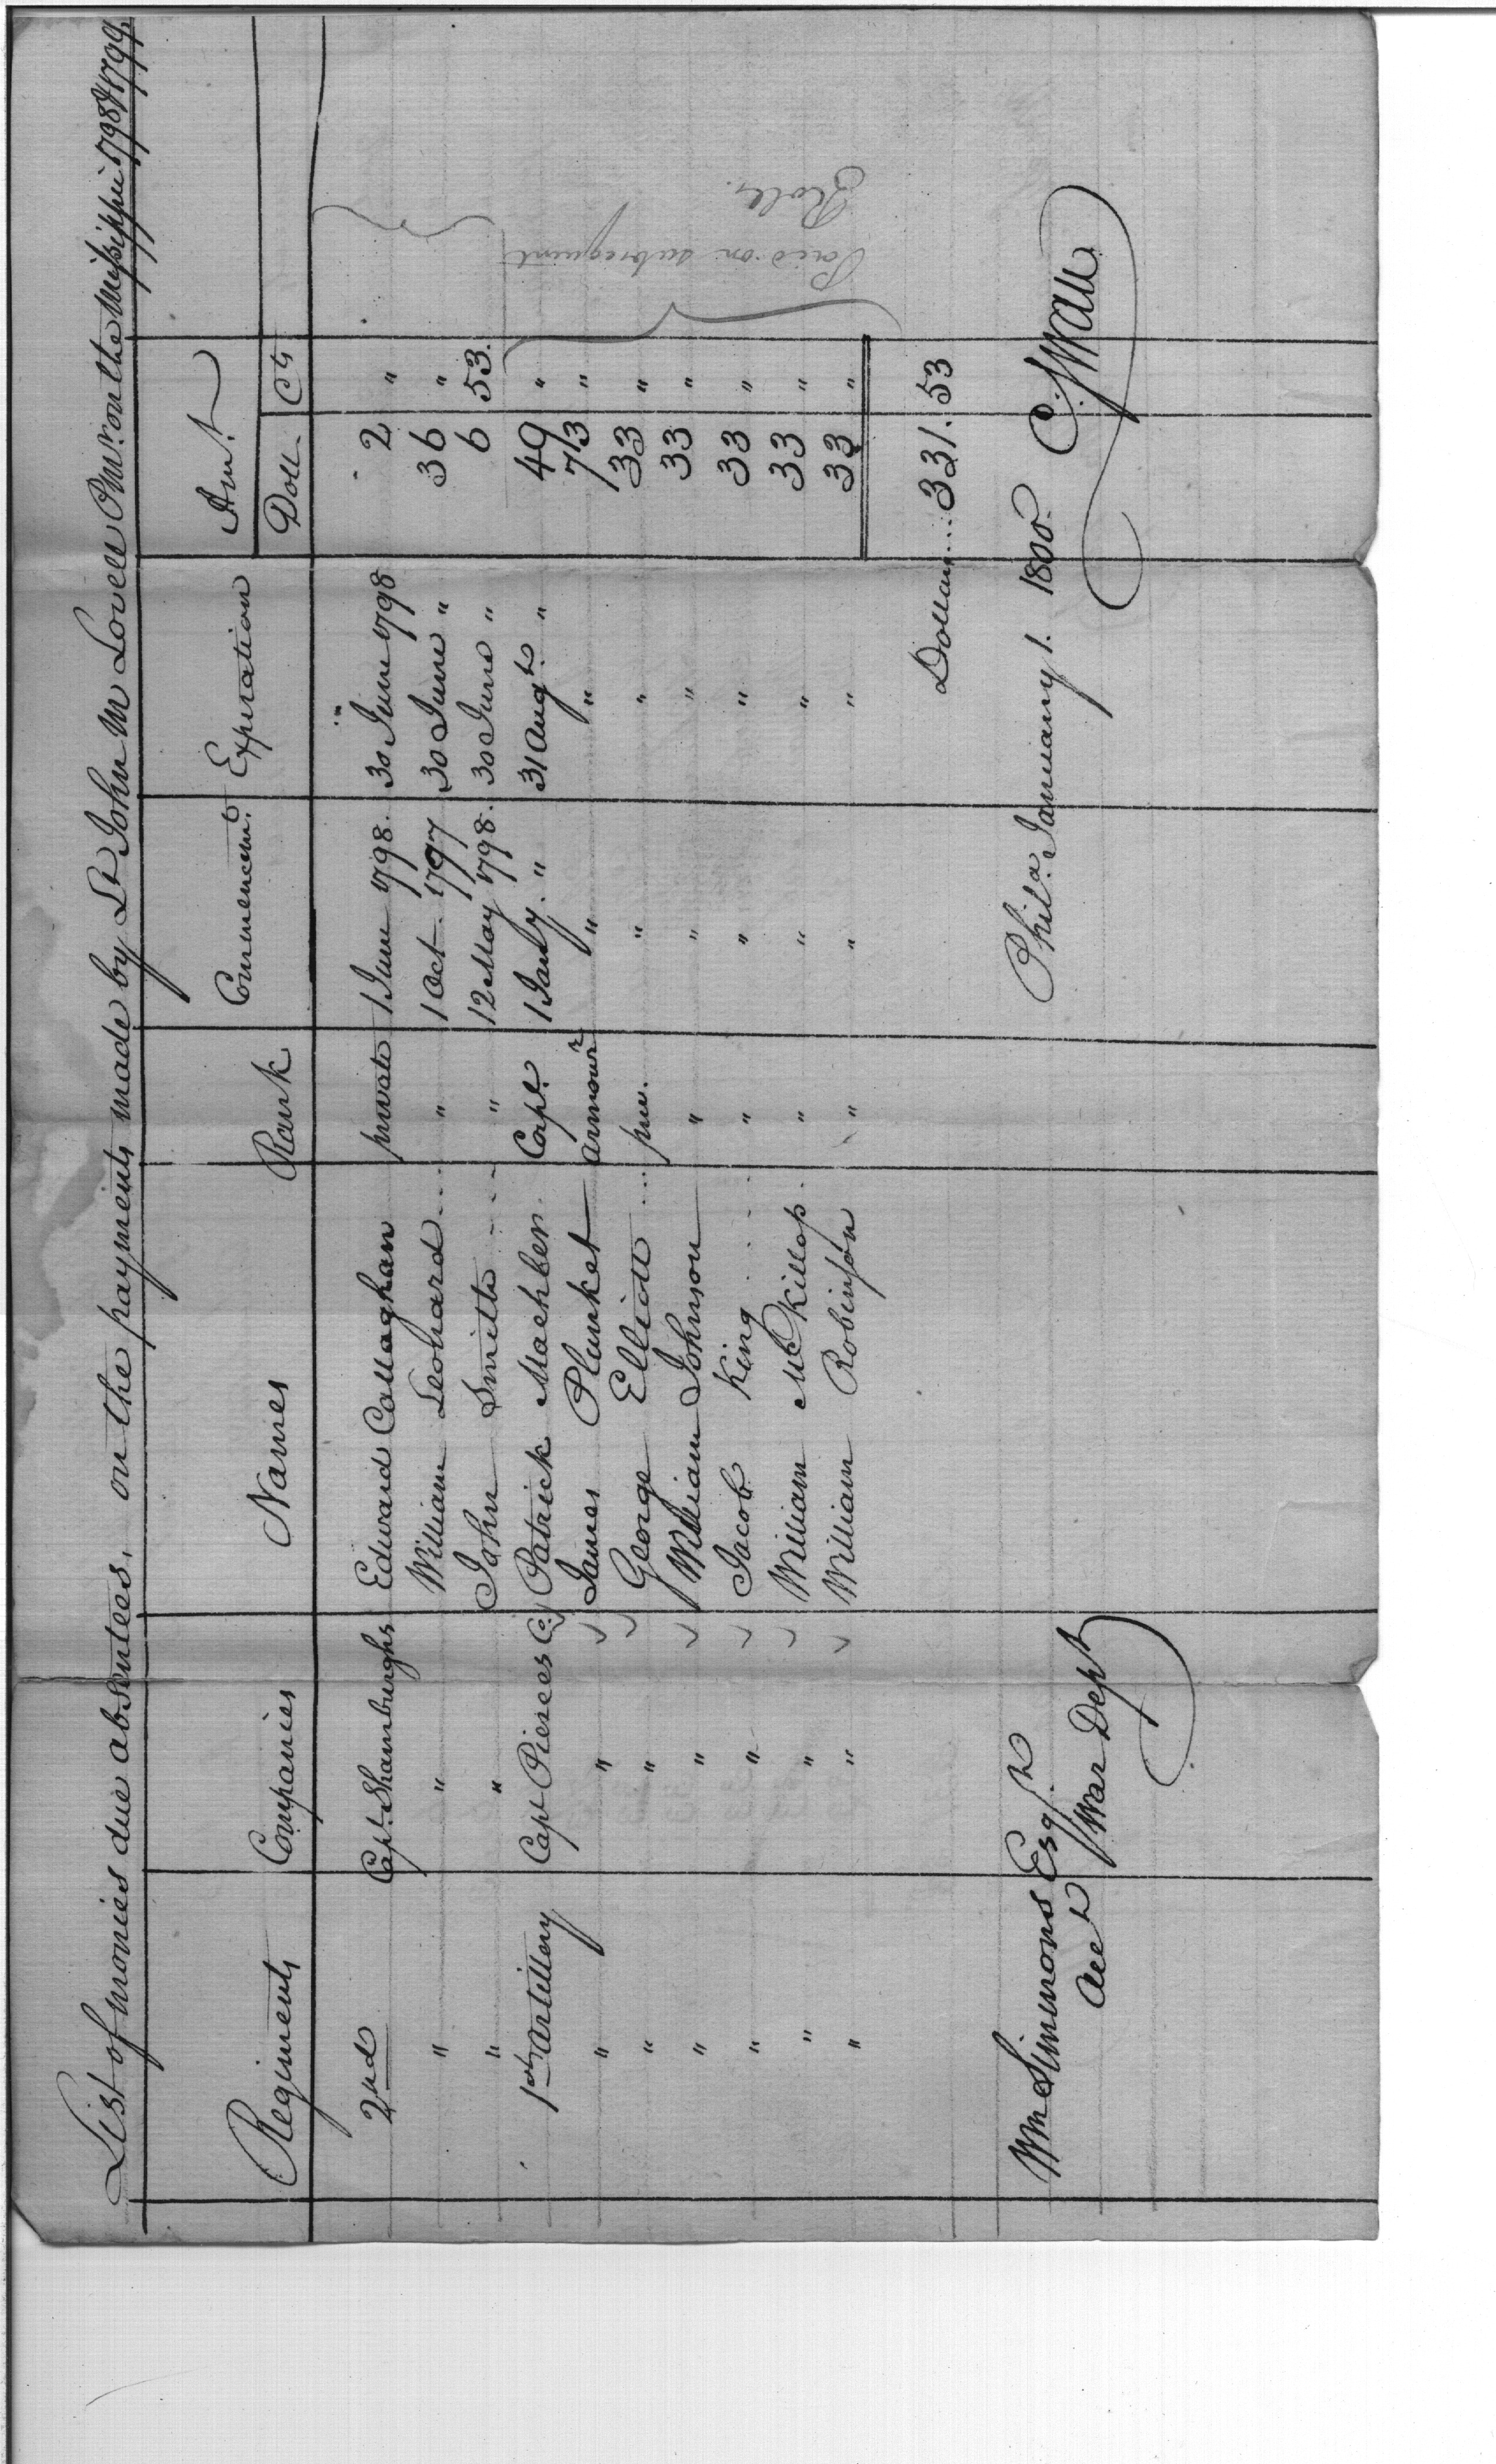 List of monies due absentees, on the payments made by Lt John M Lovell P.M.r on the Mississippi 1798 & 1799
Regiments Companies Names Rank Commencemt. Expiration Amt.
Doll. Cts
2nd Capt. Shamburghs Edward Callaghan private 1 June 1798. 30 June 1798 2 "
" " William Leonard.... " 1 Oct. 1797 30 June " 36 "
" " John Smith.... " 12 May 1798. 30 June " 6 53.
1st Artillery Capt Pierces Co. Patrick Machlen Corpl. 1 Jany. " 31 Augt. " 49 "
" " James Plunket armourr " " 73 "
" " George Elliott.... priv. " " 33 "
" " William Johnson " " " 33 "
" " Jacob King.... " " " 33 "
" " William McKillop. " " " 33 "
" " William Robinson " " " 33 "
Paid on subsequent
Rolls.
Dollars...331.53
Phila. January 1. 1800. C. Swan
Wm Simmons Esqr
Acct War Dept